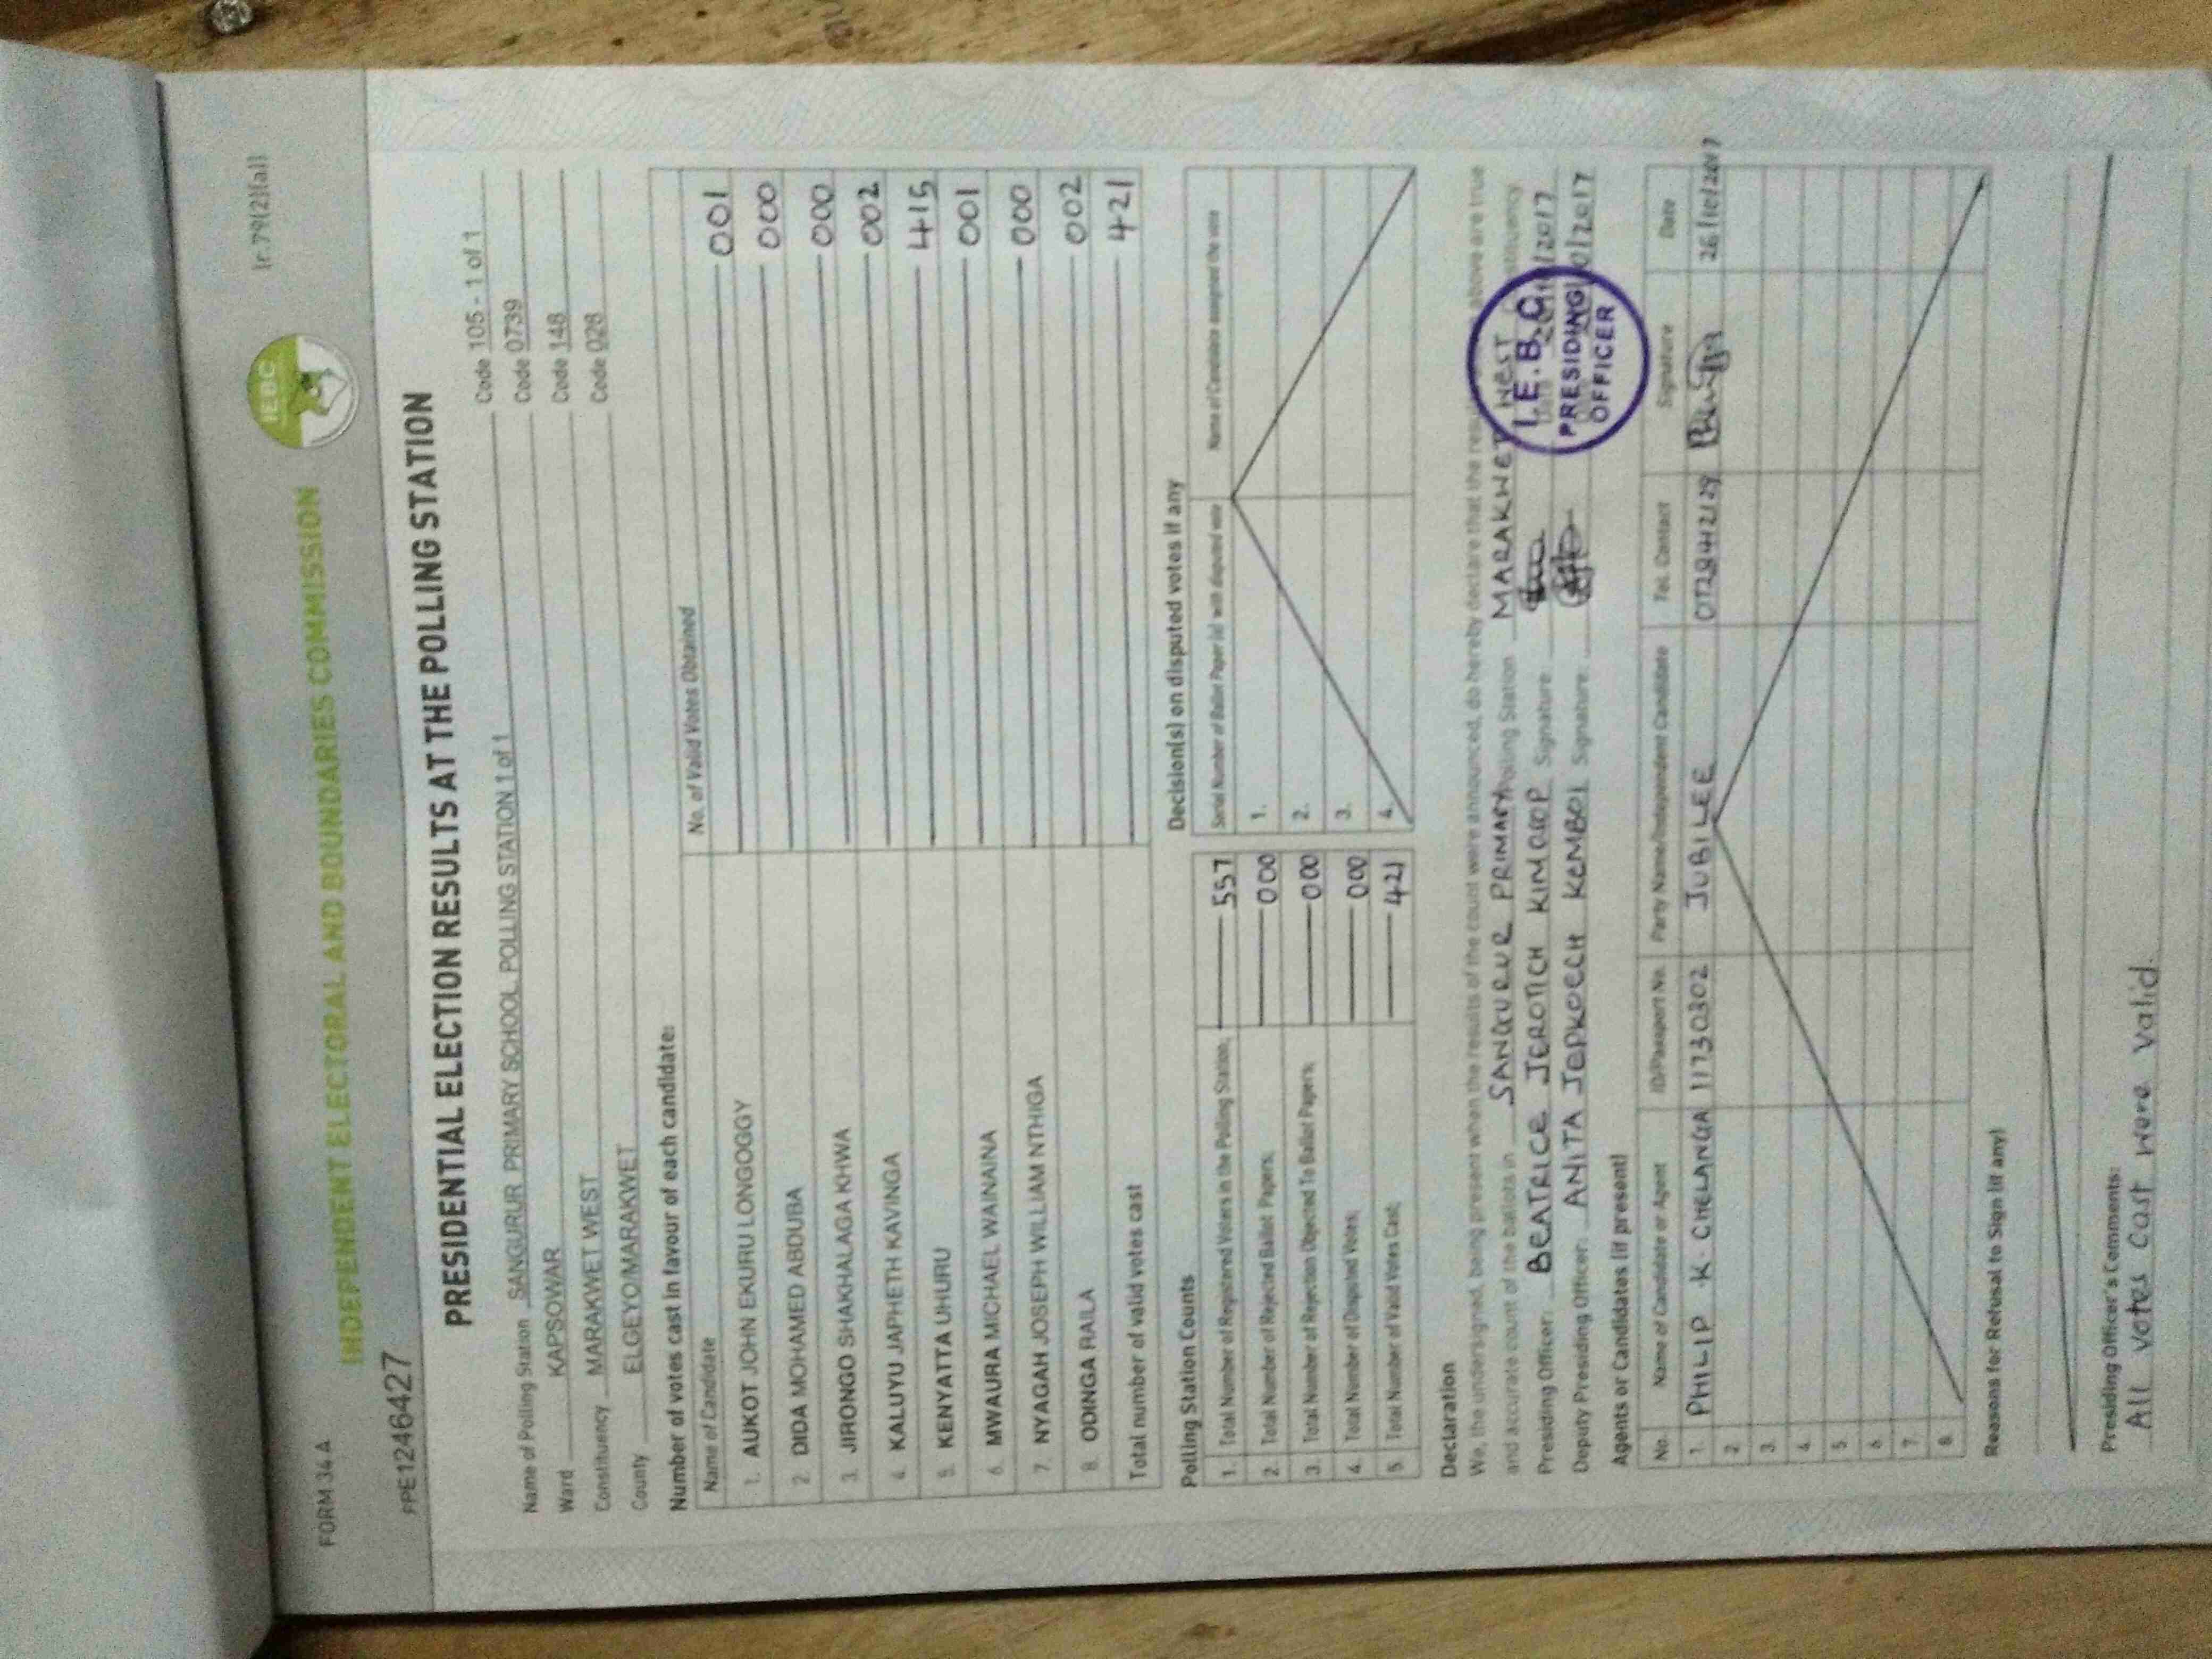 FORM 34 A
(r.79(2)(a))
INDEPENDENT ELECTORAL AND BOUNDARIES COMMISSION
IEBC
PPE1246427
PRESIDENTIAL ELECTION RESULTS AT THE POLLING STATION
Name of Polling Station SANGURUR PRIMARY SCHOOL POLLING STATION 1 of 1 Code 105 - 1 of 1
Ward KAPSOWAR Code 0739
Constituency MARAKWET WEST Code 148
County ELGEYO/MARAKWET Code 028
Number of votes cast in favour of each candidate:
Name of Candidate No. of Valid Votes Obtained
1. AUKOT JOHN EKURU LONGOGGY 001
2. DIDA MOHAMED ABDUBA 000
3. JIRONGO SHAKHALAGA KHWA 000
4. KALUYU JAPHETH KAVINGA 002
5. KENYATTA UHURU 415
6. MWAURA MICHAEL WAINAINA 001
7. NYAGAH JOSEPH WILLIAM NTHIGA 000
8. ODINGA RAILA 002
Total number of valid votes cast 421
Polling Station Counts
1. Total Number of Registered Voters in the Polling Station; 557
2. Total Number of Rejected Ballot Papers; 000
3. Total Number of Rejection Objected To Ballot Papers; 000
4. Total Number of Disputed Votes; 000
5. Total Number of Valid Votes Cast; 421
Decision(s) on disputed votes if any
Serial Number of Ballot Paper (s) with disputed vote Name of Candidate assigned the vote
1.
2.
3.
4.
Declaration
We, the undersigned, being present when the results of the count were announced, do hereby declare that the results above are true
and accurate count of the ballots in SANGURUR PRIMARY Polling Station MARAKWET WEST Constituency
Presiding Officer: BEATRICE JEROTICH KIMOROP Signature: /2017
Deputy Presiding Officer: ANITA JEPKOECH KEMBOI Signature: /2017
I.E.B.C
PRESIDING
OFFICER
Agents or Candidates (if present)
No. Name of Candidate or Agent ID/Passport No. Party Name/Independent Candidate Tel. Contact Signature Date
1. PHILIP K. CHELANGA 11730302 JUBILEE 0728442129 26/10/2017
2.
3.
4.
5.
6.
7.
8.
Reasons for Refusal to Sign (if any)
Presiding Officer's Comments:
All Votes Cast Were Valid.